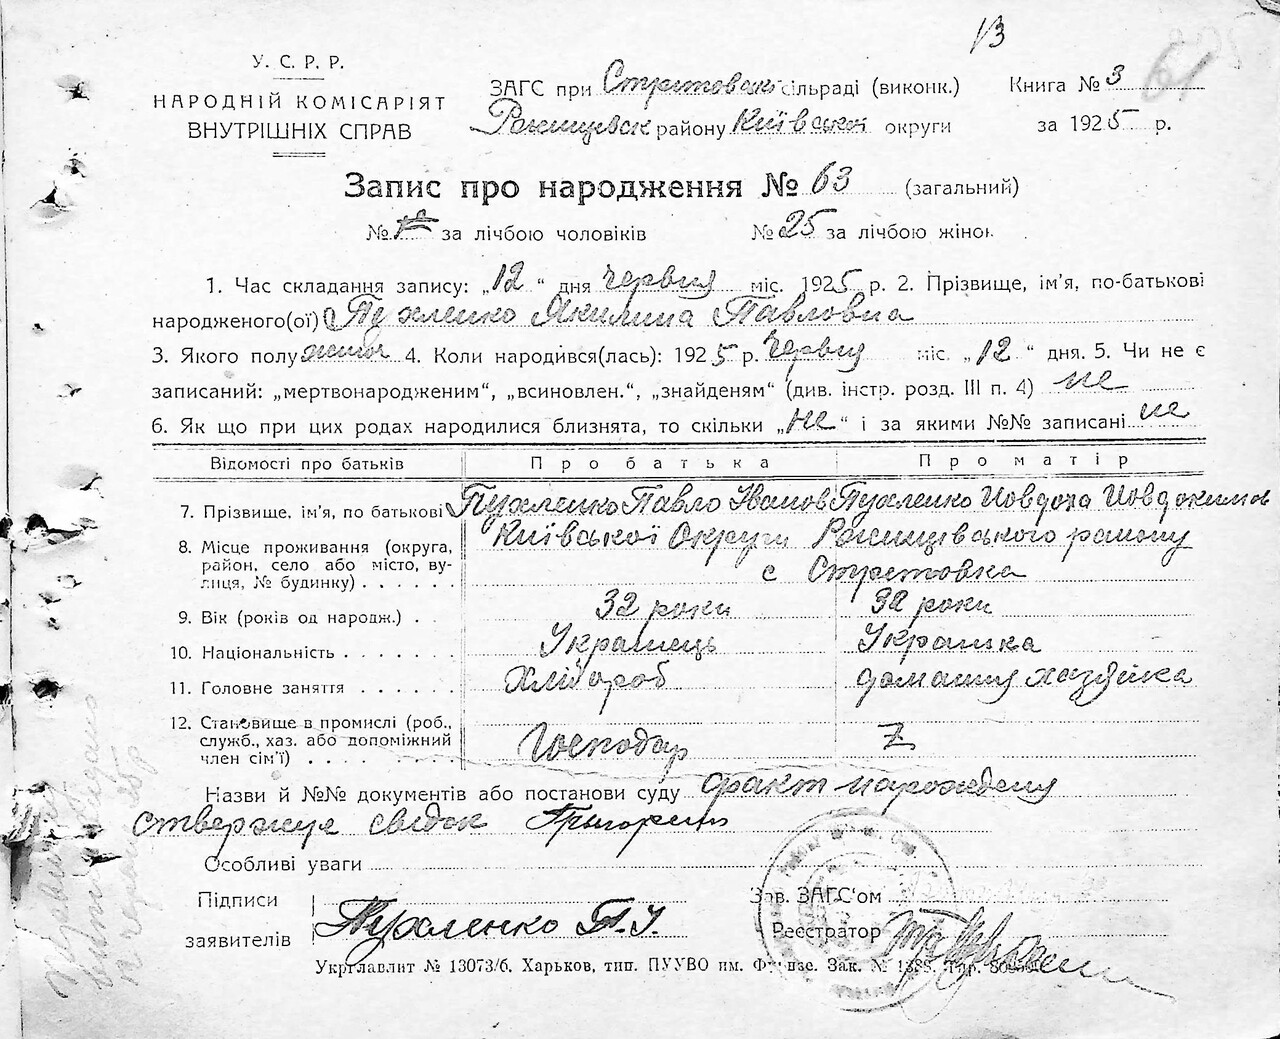 13
61
У. С. Р. Р.
НАРОДНІЙ КОМІСАРІЯТ
ВНУТРІШНІХ СПРАВ
ЗАГС при Стритовськ сільраді (виконк.) Книга № 3
Рокишевск району Київської округи за 1925 р.
Запис про народження № 63 (загальний)
№ за лічбою чоловіків № 25 за лічбою жінок
1. Час складання запису: „12“ дня червня міс. 1925 р. 2. Прізвище, ім'я, по-батькові
народженого(ої) Пухленко Якилина Павловна
3. Якого полу жіноч 4. Коли народився(лась): 1925 р. червня міс. „12“ дня. 5. Чи не є
записаний: „мертвонародженим“, „всиновлен.“, „знайденям“ (див. інстр. розд. III п. 4) не
6. Як що при цих родах народилися близнята, то скільки „не“ і за якими №№ записані не
Відомості про батьків Про батька Про матір
7. Прізвище, ім'я, по батькові Пухленко Павло Іванов Пухленко Иовдоха Иовдокимов
8. Місце проживання (округа, район, село або місто, вулиця, № будинку) . . . . . Київської Округи Рокишевського району
с Стритовка
9. Вік (років од народж.) . . 32 роки 32 роки
10. Національність . . . . . . Українець Українка
11. Головне заняття . . . . . . Хлібороб домашня хазяйка
12. Становище в промислі (роб.,
служб., хаз. або допоміжний
член сім'ї) . . . . Господар Z
Назви й №№ документів або постанови суду факт народження
ствержує свідок Григоренко
Особливі уваги
Підписи
заявителів Пухленко П. І.
Зав. ЗАГС'ом
Реєстратор
Укрглавліт № 13073/б. Харьков, тип. ПУУВО им. Фрунзе. Зак. № 1388.